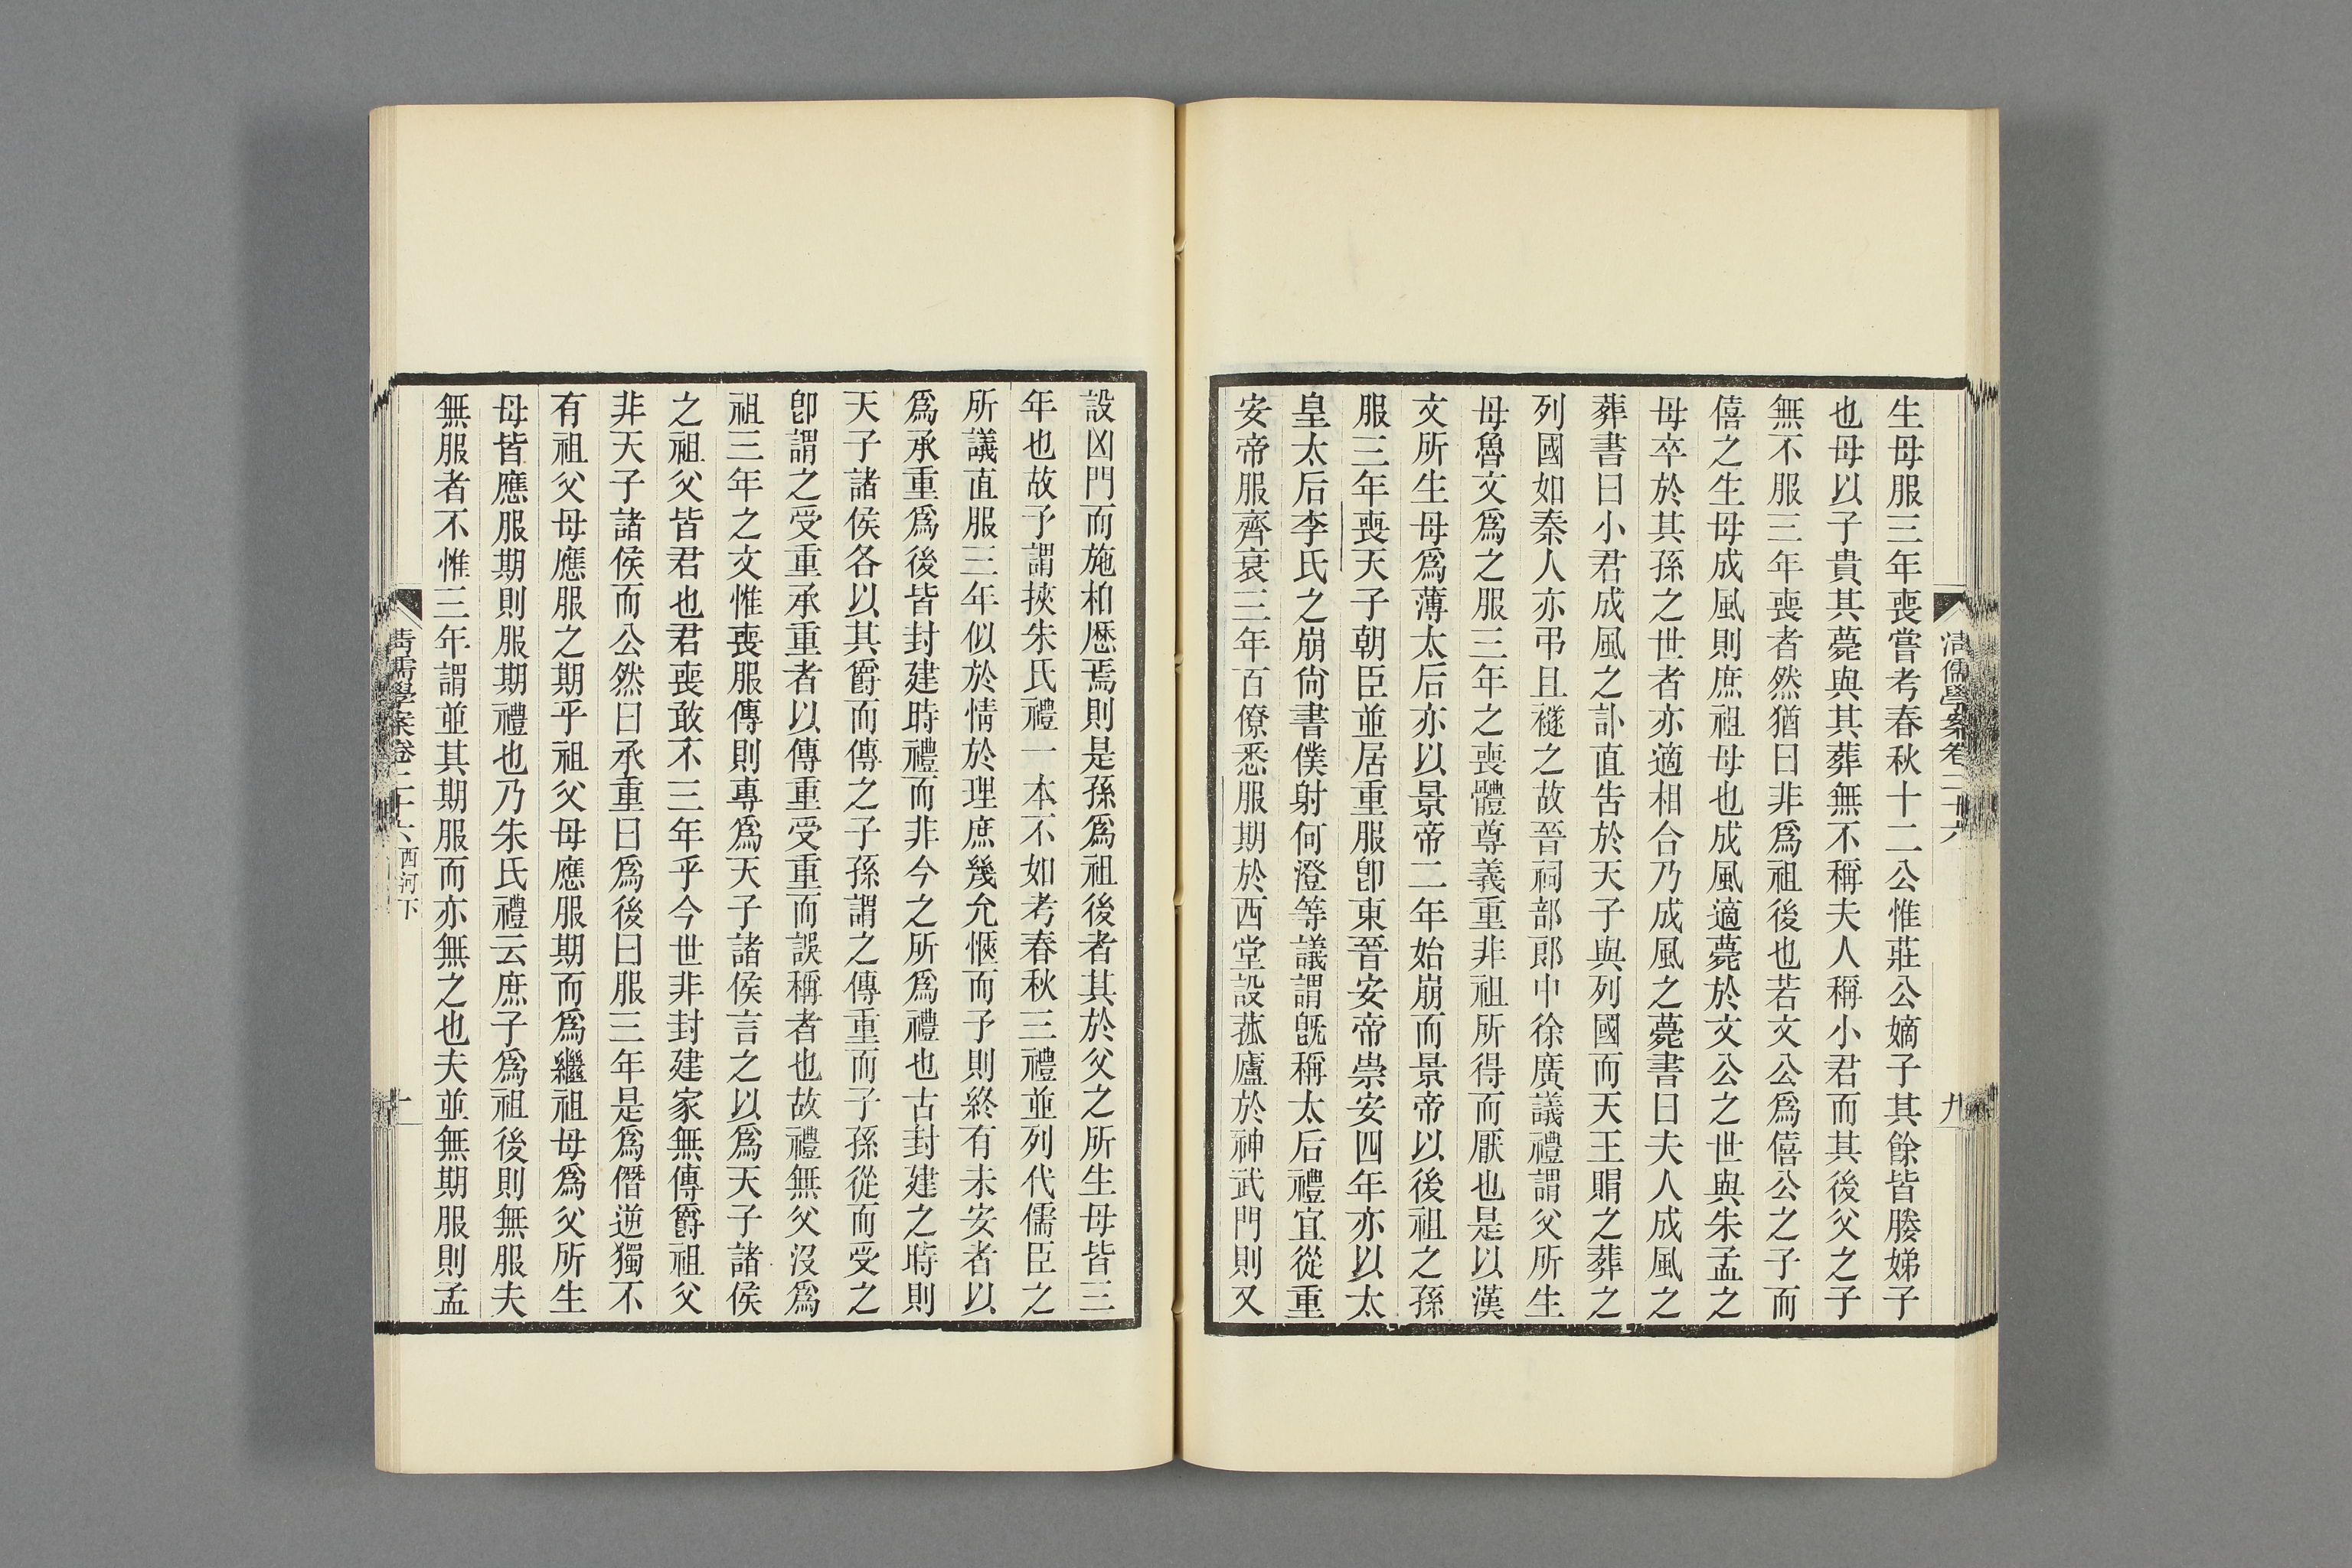 清儒學案卷二十六
九
生母服三年喪嘗考春秋十二公惟莊公嫡子其餘皆媵娣子
也母以子貴其薨與其葬無不稱夫人稱小君而其後父之子
無不服三年喪者然猶曰非爲祖後也若文公爲僖公之子而
僖之生母成風則庶祖母也成風適薨於文公之世與朱孟之
母卒於其孫之世者亦適相合乃成風之薨書曰夫人成風之
葬書曰小君成風之訃直告於天子與列國而天王賵之葬之
列國如秦人亦弔且襚之故晉祠部郎中徐廣議禮謂父所生
母魯文爲之服三年之喪體尊義重非祖所得而厭也是以漢
文所生母爲薄太后亦以景帝二年始崩而景帝以後祖之孫
服三年喪天子朝臣並居重服卽東晉安帝崇安四年亦以太
皇太后李氏之崩尙書僕射何澄等議謂旣稱太后禮宜從重
安帝服齊衰三年百僚悉服期於西堂設菰廬於神武門則又
設凶門而施柏歷焉則是孫爲祖後者其於父之所生母皆三
年也故予謂挾朱氏禮一本不如考春秋三禮並列代儒臣之
所議直服三年似於情於理庶幾允愜而予則終有未安者以
爲承重爲後皆封建時禮而非今之所爲禮也古封建之時則
天子諸侯各以其爵而傳之子孫謂之傳重而子孫從而受之
卽謂之受重承重者以傳重受重而誤稱者也故禮無父沒爲
祖三年之文惟喪服傳則專爲天子諸侯言之以爲天子諸侯
之祖父皆君也君喪敢不三年乎今世非封建家無傳爵祖父
非天子諸侯而公然曰承重曰爲後曰服三年是爲僭逆獨不
有祖父母應服之期乎祖父母應服期而爲繼祖母爲父所生
母皆應服期則服期禮也乃朱氏禮云庶子爲祖後則無服夫
無服者不惟三年謂並其期服而亦無之也夫並無期服則孟
清儒學案卷二十六 西河下
十